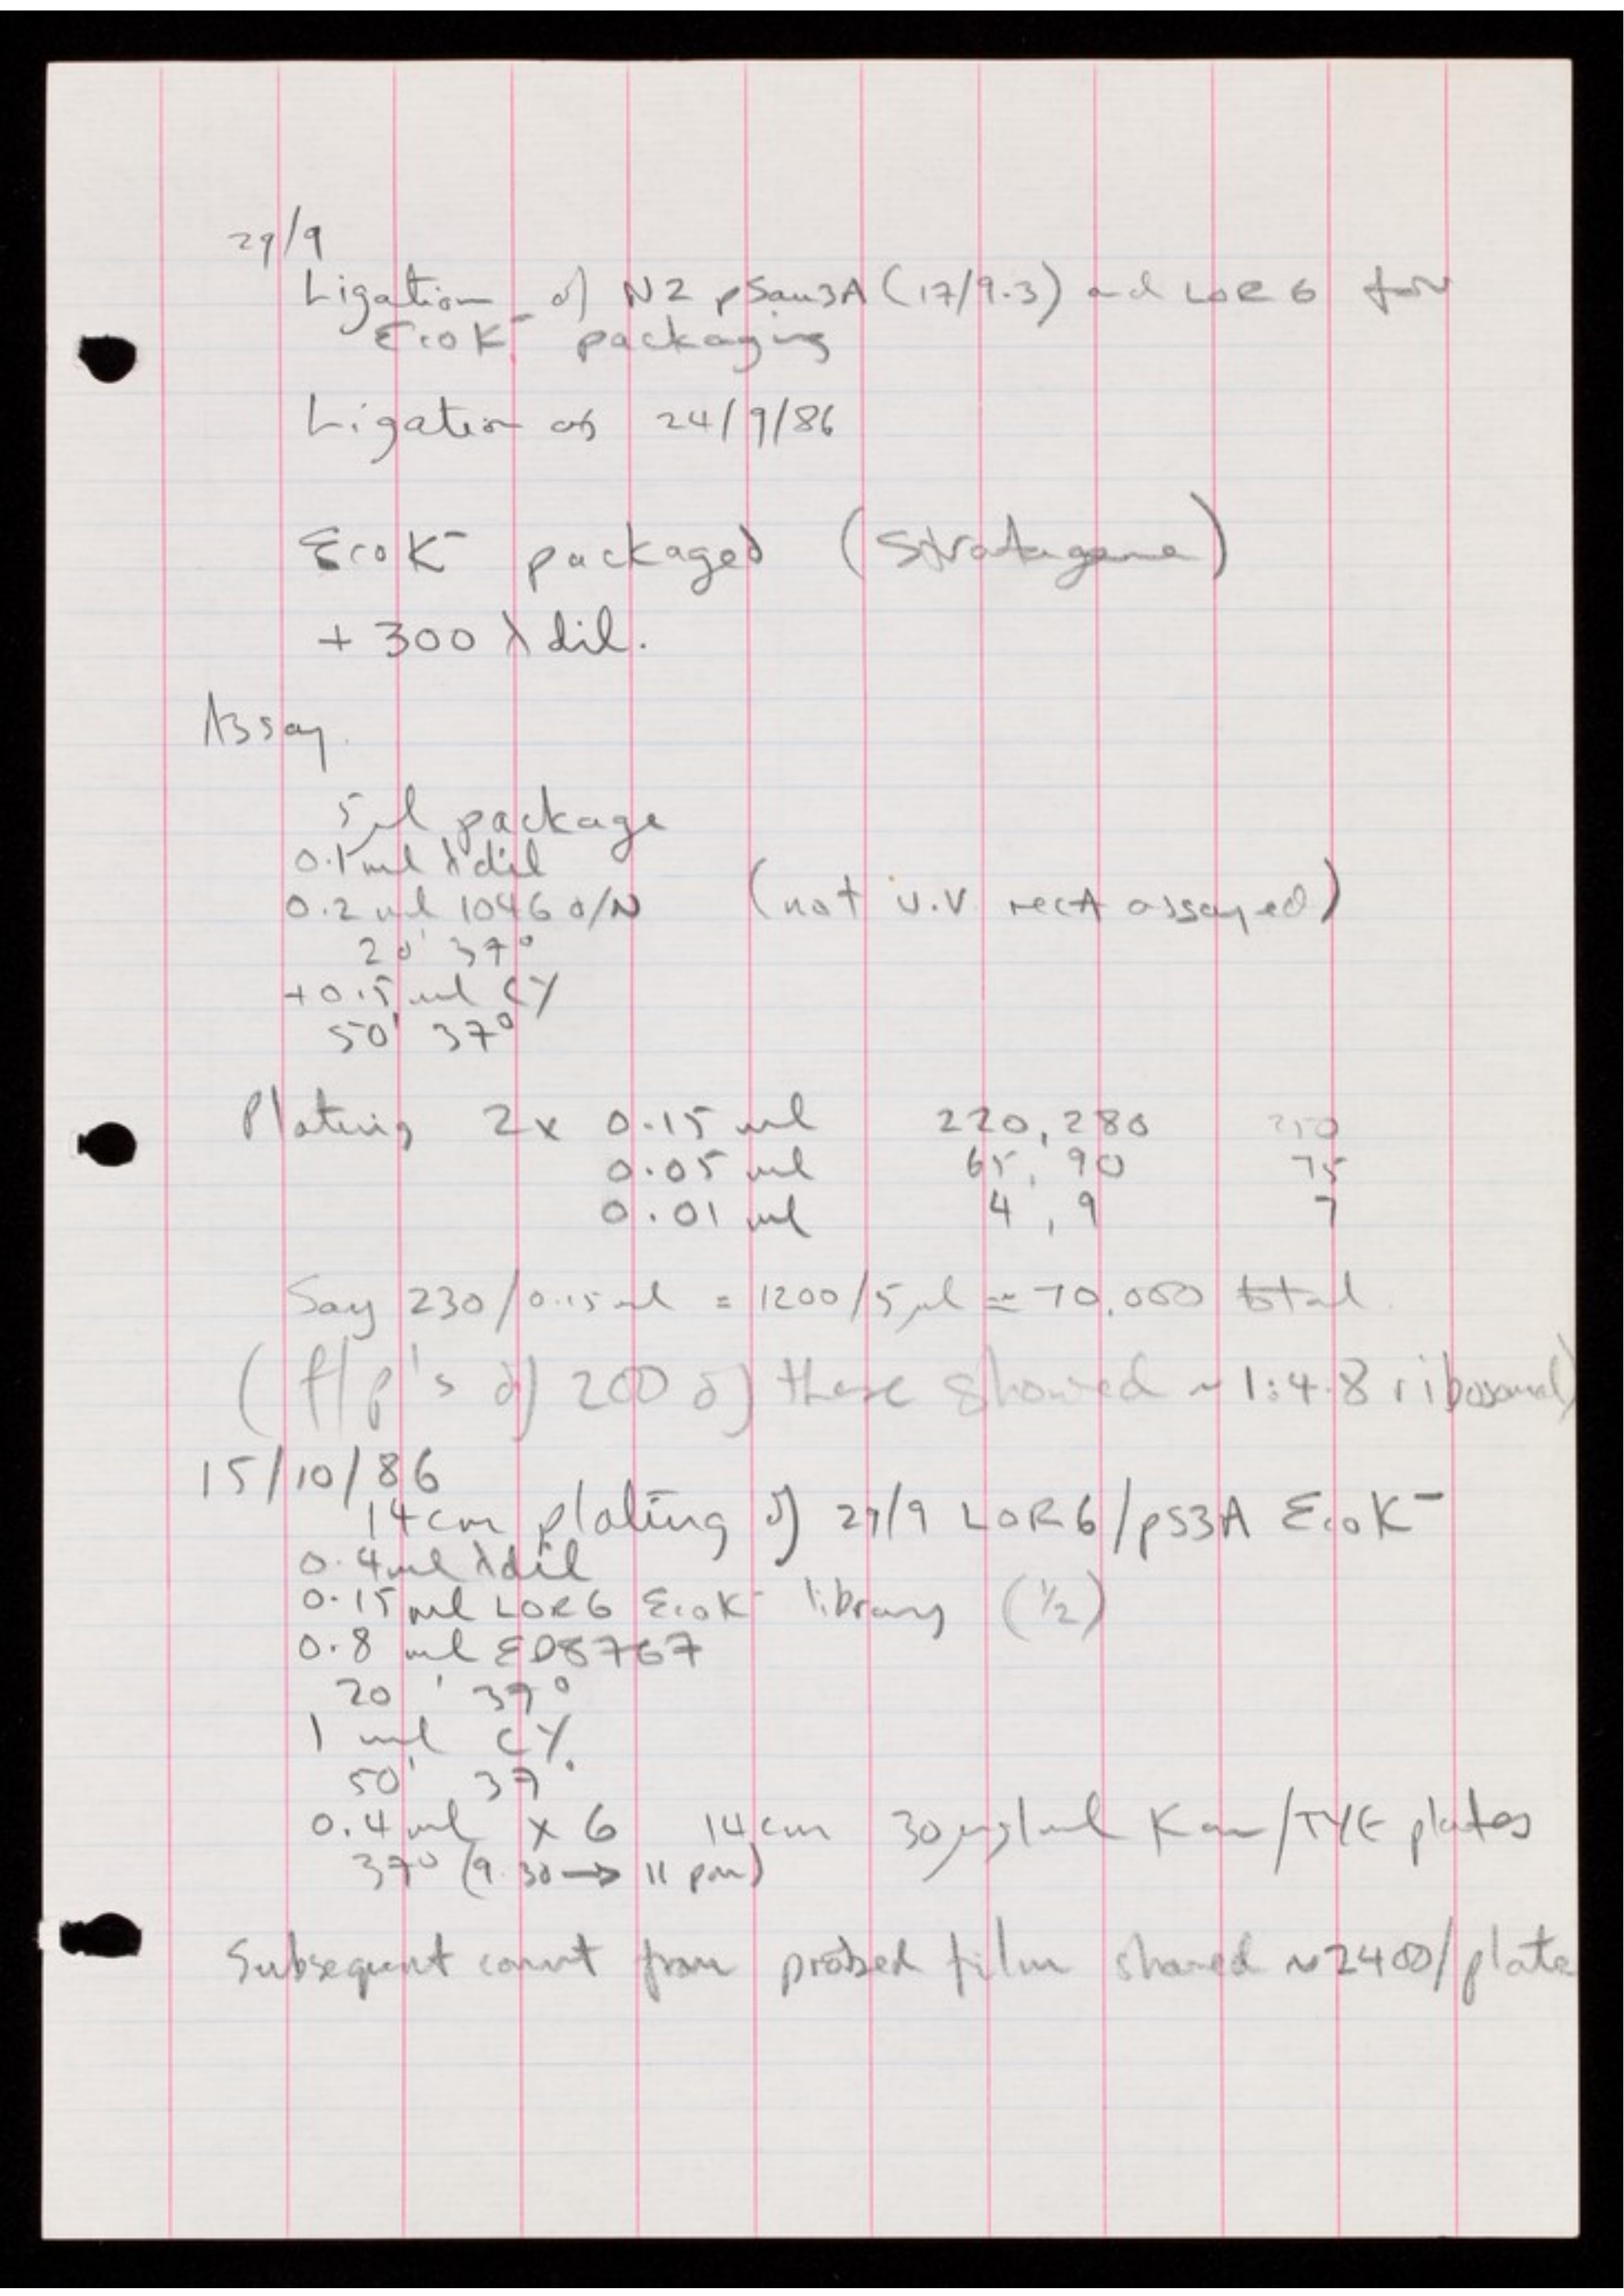 29/9
Ligation of N2 pSau3A (17/9.3) and LOR6 for
EcoK⁻ packaging
Ligation as 24/9/86
EcoK⁻ packaged (Stratagene)
+ 300 λ dil.
Assay.
5μl package
0.1 ml λ dil
0.2 ml 1046 o/N (not U.V. recA assayed)
20' 37°
+0.5 ml CY
50' 37°
Plating 2x 0.15 ml 220, 280 250
0.05 ml 65, 90 75
0.01 ml 4, 9 7
Say 230/0.15ml = 1200/5μl ≃ 70,000 total.
(f/p's of 200 of these showed ~ 1:4.8 ribosomal)
15/10/86
14cm plating of 29/9 LOR6/pS3A EcoK⁻
0.4ml λdil
0.15 ml LOR6 EcoK⁻ library (½)
0.8 ml ED8767
20' 37°
1 ml CY.
50' 37°
0.4 ml x 6 14cm 30μg/ml Kan/TYE plates
37° (9.30 → 11 pm)
Subsequent count from probed film showed ~2400/plate